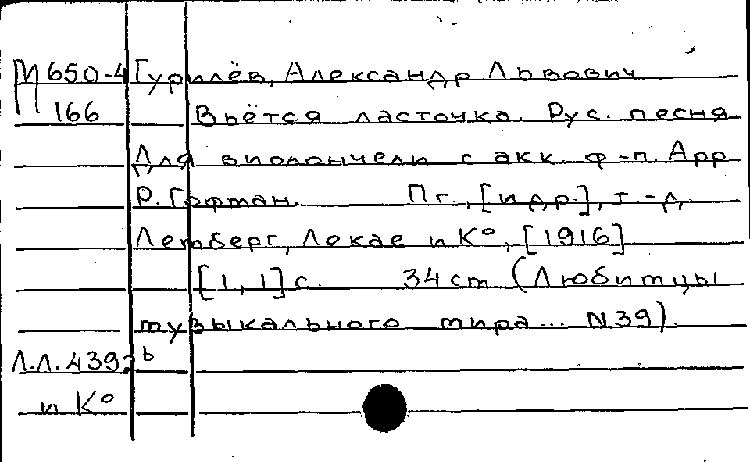 М 650-4 Гурилёв, Александр Львович
166 Вьётся ласточка. Рус. песня
Для виолончели с акк. ф-п. Арр
Р. Гофман. Пг., [и др.], т-д,
Лемберг, Локае и К°, [1916]
[1,1] с. 34 cm (Любимцы
музыкального мира... N 39).
Л.Л. 439 b
и К°